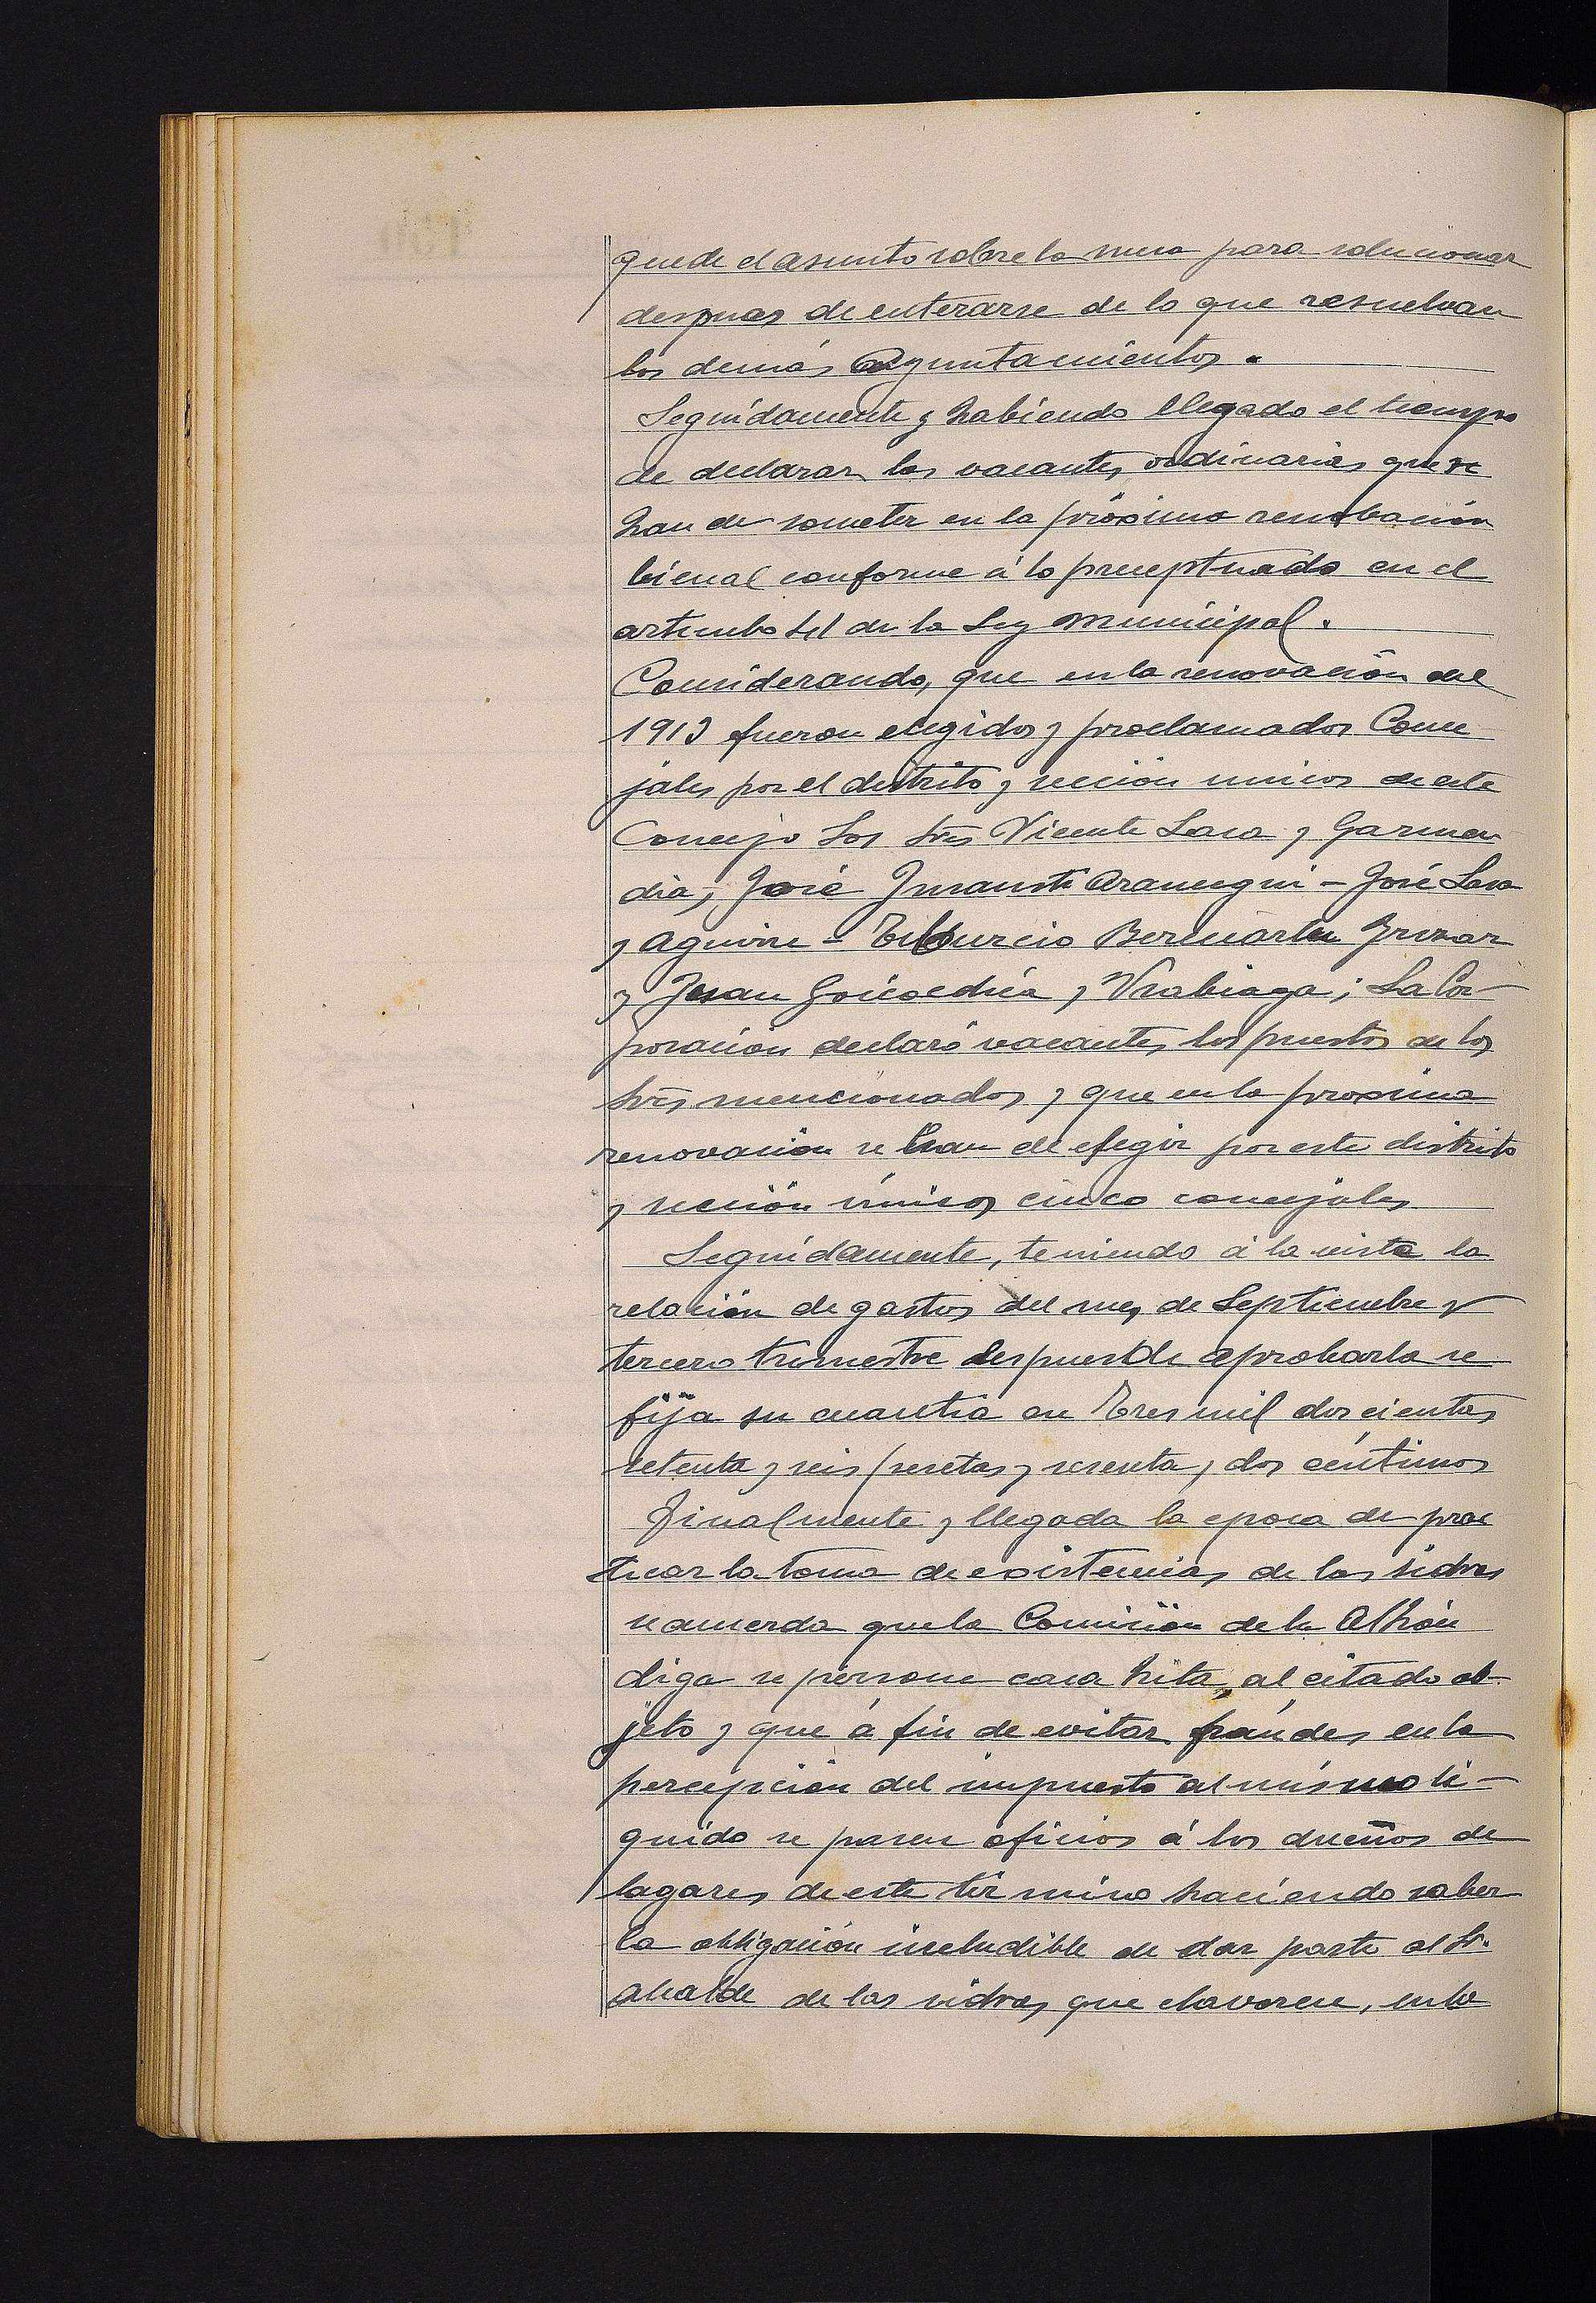 quede el asunto sobre la mesa para solucionar
despues de enterarse de lo que resuelvan
los demás Ayuntamientos.
Seguidamente y habiendo llegado el tiempo
de declarar las vacantes ordinarias que se
han de someter en la próxima renobación
bienal conforme á lo preceptuado en el
articulo de la Ley Municipal.
Considerando, que en la renovación del
1913 fueron elegidos y proclamados Conce
jales por el distrito y sección unicos de este
Concejo Los Srs Vicente Lasa y Garmen
dia, José Aramegui - José Lasa
y Aguirre - Tiburcio Berasiartu Irizar
y Juan Goicoechea y Urabiaga; La Cor-
poración declaró vacantes los puestos de los
Srs mencionados y que en la proxima
renovación se han de elegir por este distrito
y sección únicos cinco concejales
Seguidamente, teniendo á la vista la
relación de gastos del mes de Septiembre y
tercero trimestre despues de aprobarla se
fija su cuantia en Tres mil doscientas
setenta y seis pesetas y sesenta y dos céntimos
Finalmente y llegada la epoca de prac
ticar la toma de existencias de las sidras
se acuerda que la Comisión de la Alhón
diga se persone casa hita, al citado ob-
jeto y que á fin de evitar fraúdes en la
percepción del impuesto al mismo li-
quido se pasen oficios á los dueños de
lagares de este término haciendo saber
la obligación ineludible de dar parte al Sr.
Alcalde de las sidras que elavoren, en la